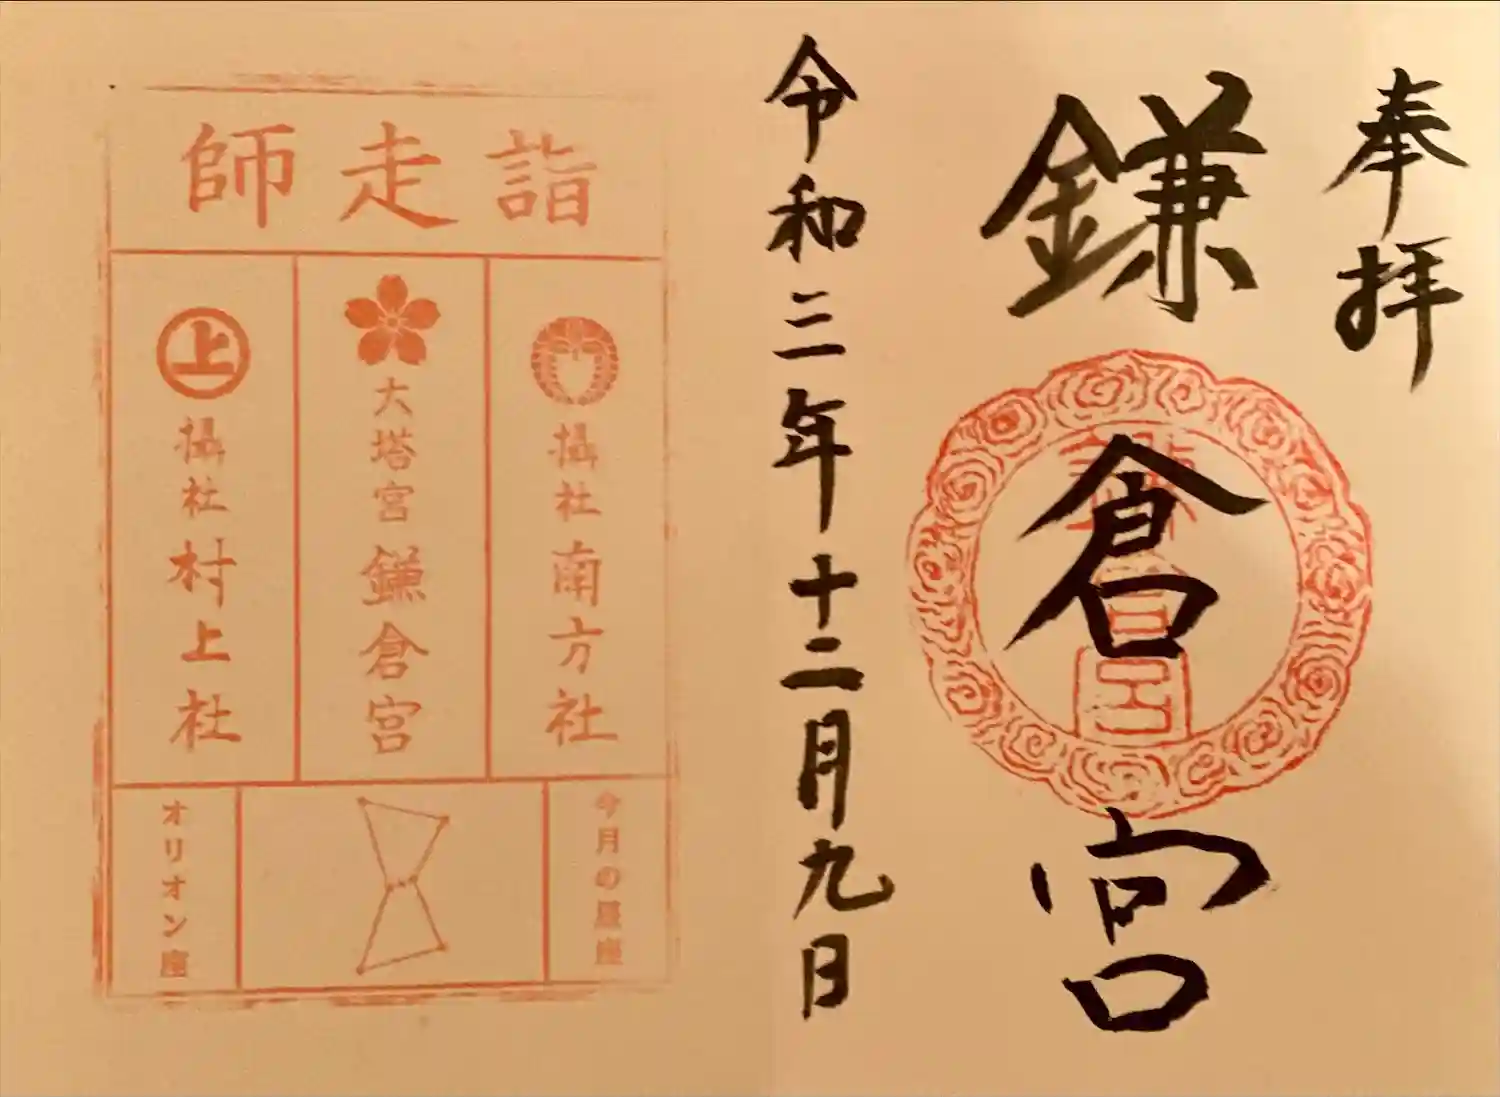 奉拝
鎌倉宮
令和三年十二月九日
師走詣
攝社 南方社
大塔宮 鎌倉宮
上
攝社 村上社
今月の星座
オリオン座